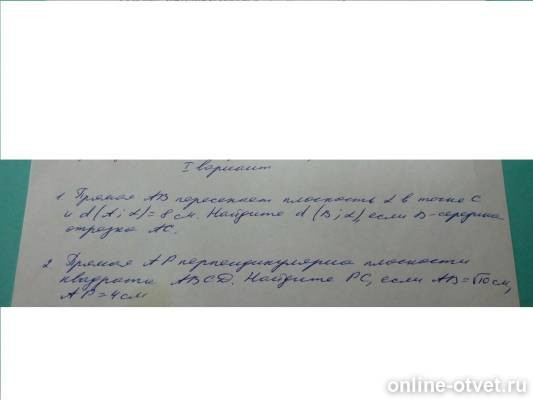 I вариант
1. Прямая AB пересекает плоскость α в точке C
и d(A; α) = 8 см. Найдите d(B; α), если B-середина
отрезка AC.
2. Прямая AP перпендикулярна плоскости
квадрата ABCD. Найдите PC, если AB = √10 см,
AP = 4 см
online-otvet.ru